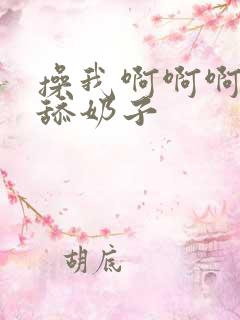 操我 啊啊啊
舔奶子
胡底